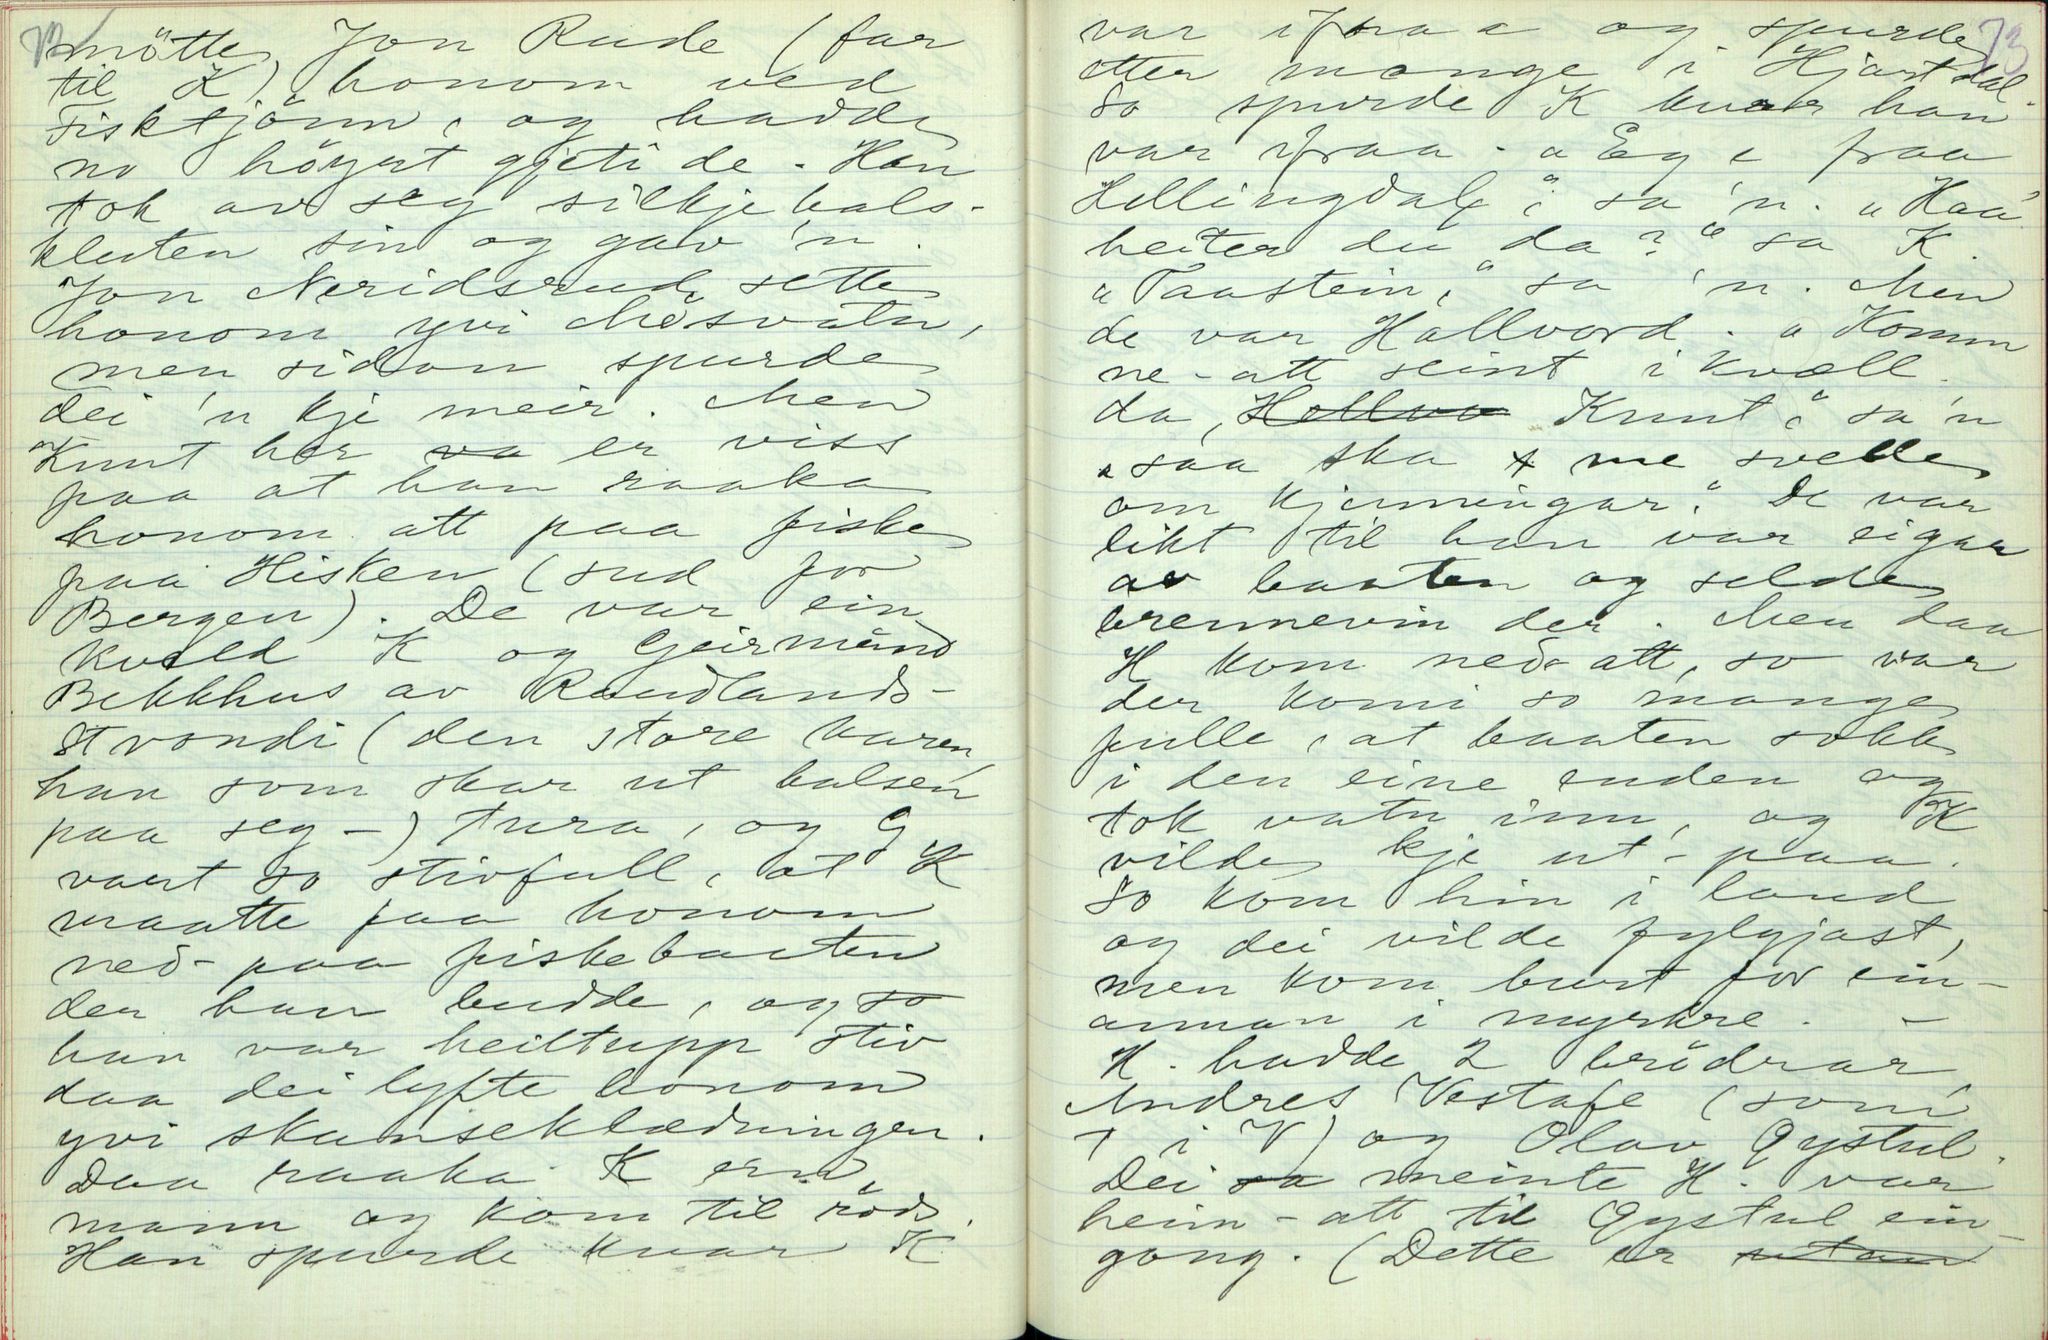 72
mötte Jon Rude (far
til K) honom ved
Fisktjönn, og hadde
no höyrt gjeti de. Han
tok av seg silkjehals-
kluten sin og gav 'n.
Jon Neridsrud sette
honom yvi Mösvatn,
men sidan spurde
dei 'n kje meir. Men
Knut her va er viss
paa at han raaka
honom att paa fiske
paa Hisken (sud for
Bergen). De var ein
kveld K og Geirmund
Bekkhus av Raudlands-
strondi (den store karen,
han som skar ut halsen
paa seg -) tura, og G
vart so stivfull, at K
maatte faa honom
ned-paa fiskebaaten
der han budde, og so
han var heiltupp stiv
daa dei lyfte honom
yvi skanseklædningen.
Daa raaka K ein
mann og kom til röds.
Han spurde kvar K
73
var ifraa og spurde
etter mange i Hjartdal.
So spurde K kvar han
var ifraa. "Eg e fraa
Hallingdale," sa 'n. "Haa
heiter du da?" sa K.
"Taastein," sa 'n. Men
de var Hallvord. "Komm
ne-att seint i kvæll
da, Hallvo Knut," sa 'n
"saa ska me svalle
om kjenningar." De var
likt til han var eigar
av baaten og selde
brennevin der. Men daa
K kom ned-att, so var
der komi so mange
fulle, at baaten sokk
i den eine enden og
tok vatn inn, og K
vilde kje ut-paa.
So kom hin i land
og dei vilde fylgjast,
men kom burt for ein-
annan i myrkre. -
H. hadde 2 brödrar
Andres Vestafe (som
† i V) og Olav Öystul.
Dei sa meinte H. var
heim-att til Öystul ein
gong. (Dette er utan